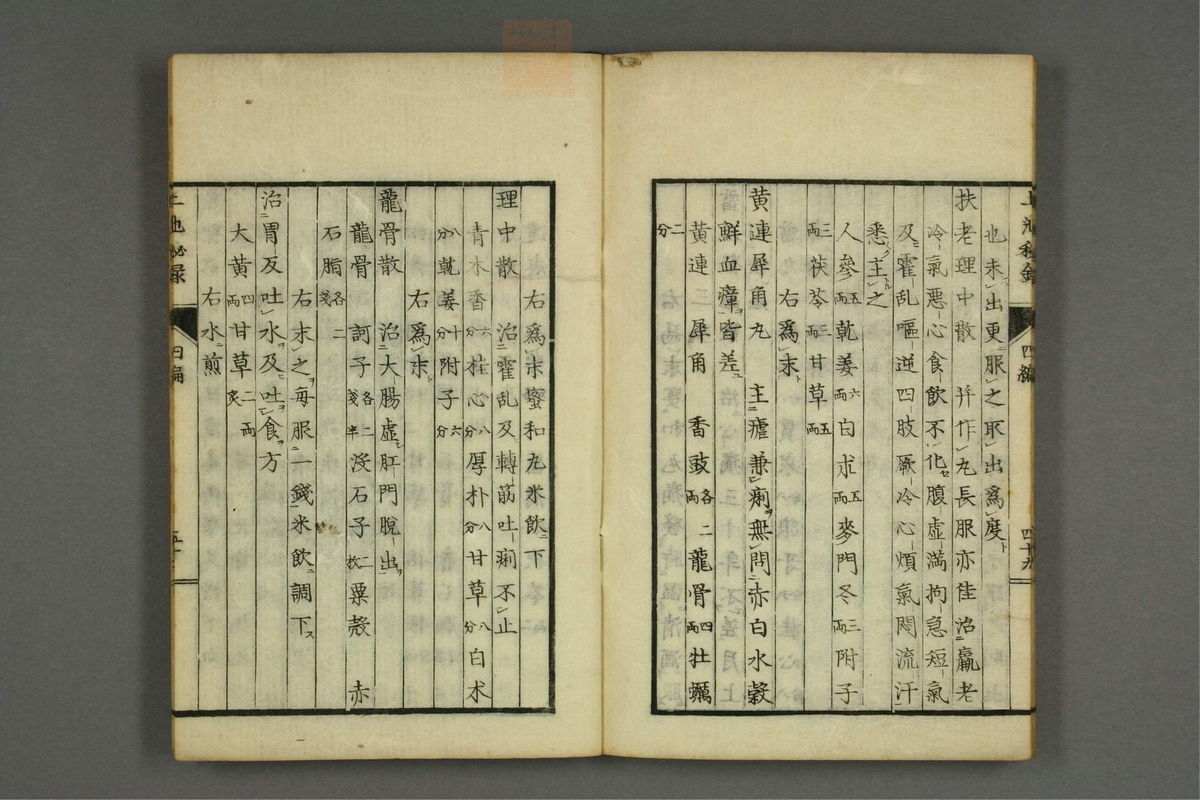 也未出更服之取出爲度
扶老理中散　幷作丸長服亦佳治羸老
冷氣惡心食飲不化腹虛滿拘急短氣
及霍亂嘔逆四肢厥冷心煩氣悶流汗
悉主之
人參五兩乾姜六兩白朮五兩麥門冬三兩附子
三兩茯苓三兩甘草五兩
右爲末
黄連犀角丸　主瘧兼痢無問赤白水穀
鮮血瘴皆差
黄連三　犀角　香豉各二兩　龍骨四兩牡蠣
二分
四十九
右爲末蜜和丸米飲下
理中散　治霍乱及轉筋吐痢不止
青木香六分桂心八分厚朴八分甘草八分白术
八分乾姜十分附子六分
右爲末
龍骨散　治大腸虛肛門脫出
龍骨　訶子各二箋半沒石子二枚粟殻　赤
石脂各二箋
右末之每服一錢米飲調下
治胃反吐水及吐食方
大黄四兩甘草二兩炙
右水煎
四編